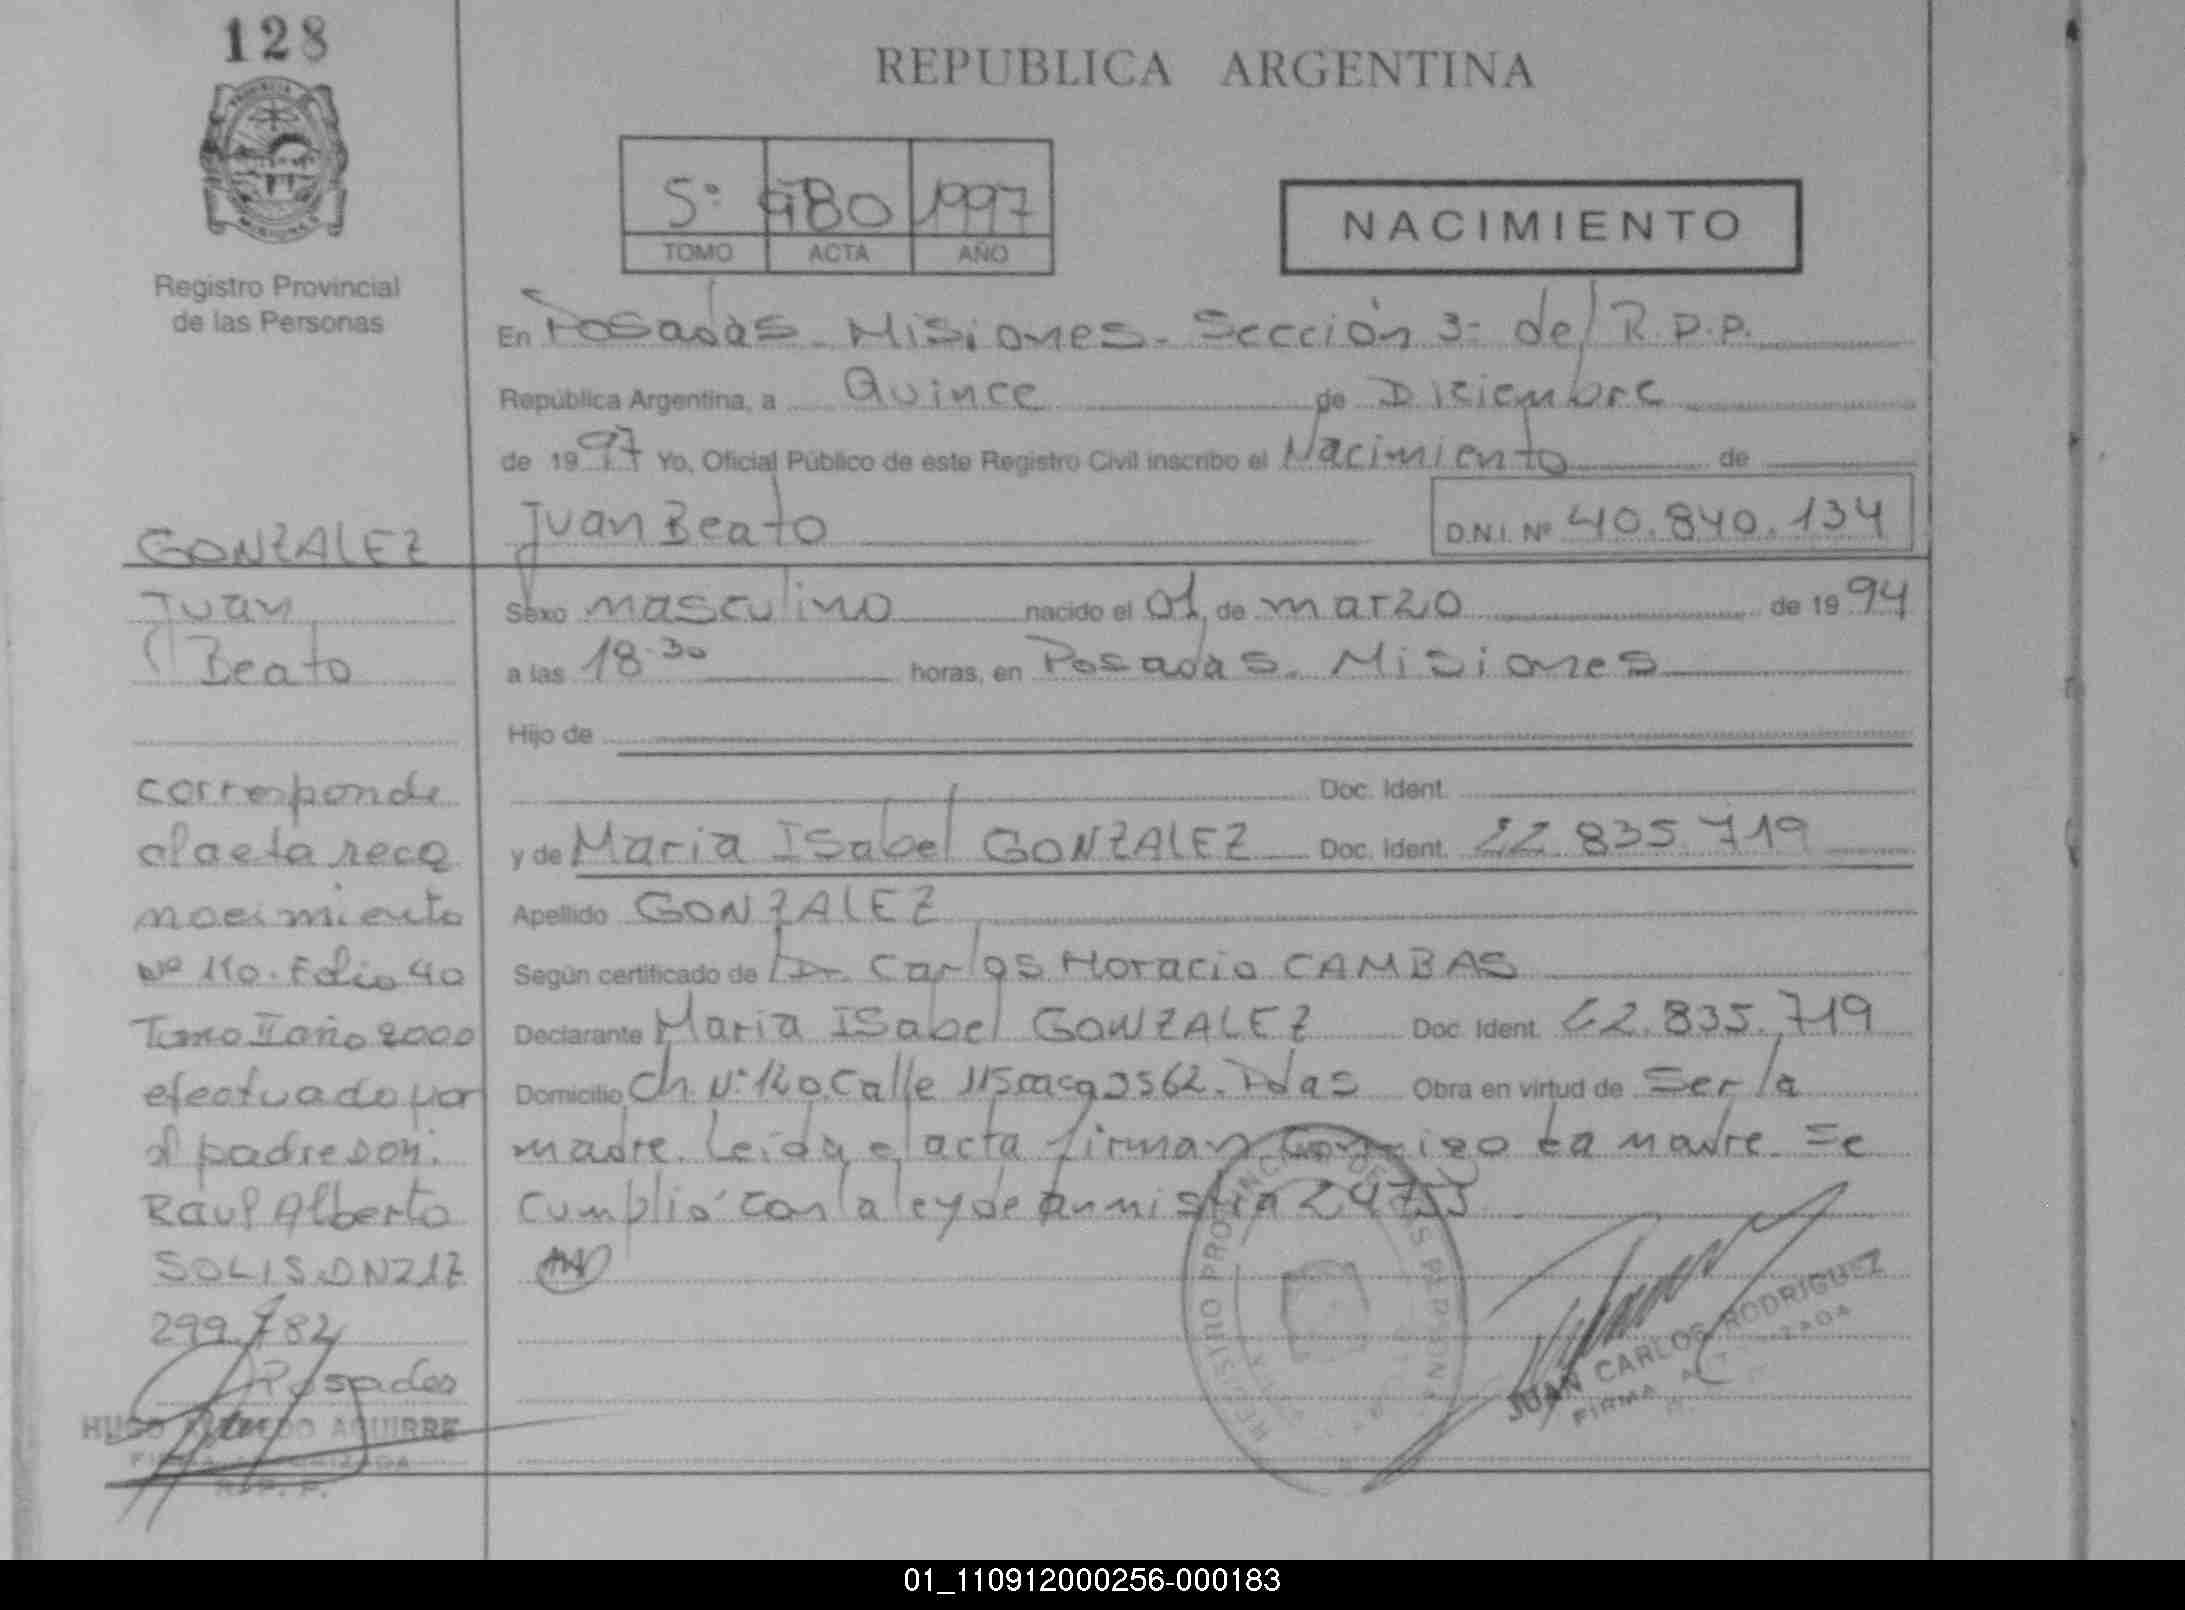 128
REPUBLICA ARGENTINA
5º 980 1997
TOMO ACTA AÑO
NACIMIENTO
Registro Provincial
de las Personas
En Posadas - Misiones - Sección 3ª del R.P.P.
República Argentina, a Quince de Diciembre
de 1997 Yo, Oficial Público de este Registro Civil inscribo el Nacimiento de
Juan Beato D.N.I. Nº 40.840.134
Sexo masculino nacido el 01 de marzo de 1994
a las 18.30 horas, en Posadas. Misiones
Hijo de
Doc. Ident.
y de Maria ISabel GONZALEZ Doc. Ident. 22.835.719
Apellido GONZALEZ
Según certificado de Dr. Carlos Horacio CAMBAS
Declarante Maria ISabel GONZALEZ Doc. Ident. 22.835.719
Domicilio Ch Nº 120 Calle 115 3562. Pdas Obra en virtud de Ser la
madre. Leida el acta firman conmigo la madre. Se
cumplió con la ley de Amnistia 24755
GONZALEZ
Juan
Beato
corresponde
al acta reco
nocimiento
Nº 110. Folio 40
Tomo II año 2000
efectuado por
el padre don.
Raul Alberto
SOLIS. DNI 17
299.782
Posadas
HUGO AGUIRRE
FIRMA AUTORIZADA
R.P.P.
REGISTRO PROVINCIAL DE LAS PERSONAS
JUAN CARLOS RODRIGUEZ
FIRMA AUTORIZADA
01_110912000256-000183